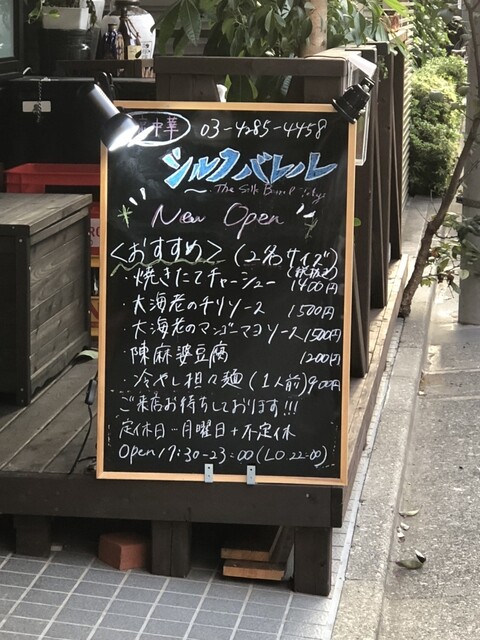 中華 03-4285-4458
シルクバレル
~ The Silk Barrel Tokyo
New Open
<おすすめ> (2名サイズ)
(税抜き)
・焼きたてチャーシュー 1400円
・大海老のチリソース 1500円
・大海老のマンゴーマヨソース 1500円
・陳麻婆豆腐 1200円
・冷やし担々麺 (1人前) 900円
ご来店お待ちしております!!!
定休日…月曜日+不定休
Open 17:30-23:00 (LO 22:00)